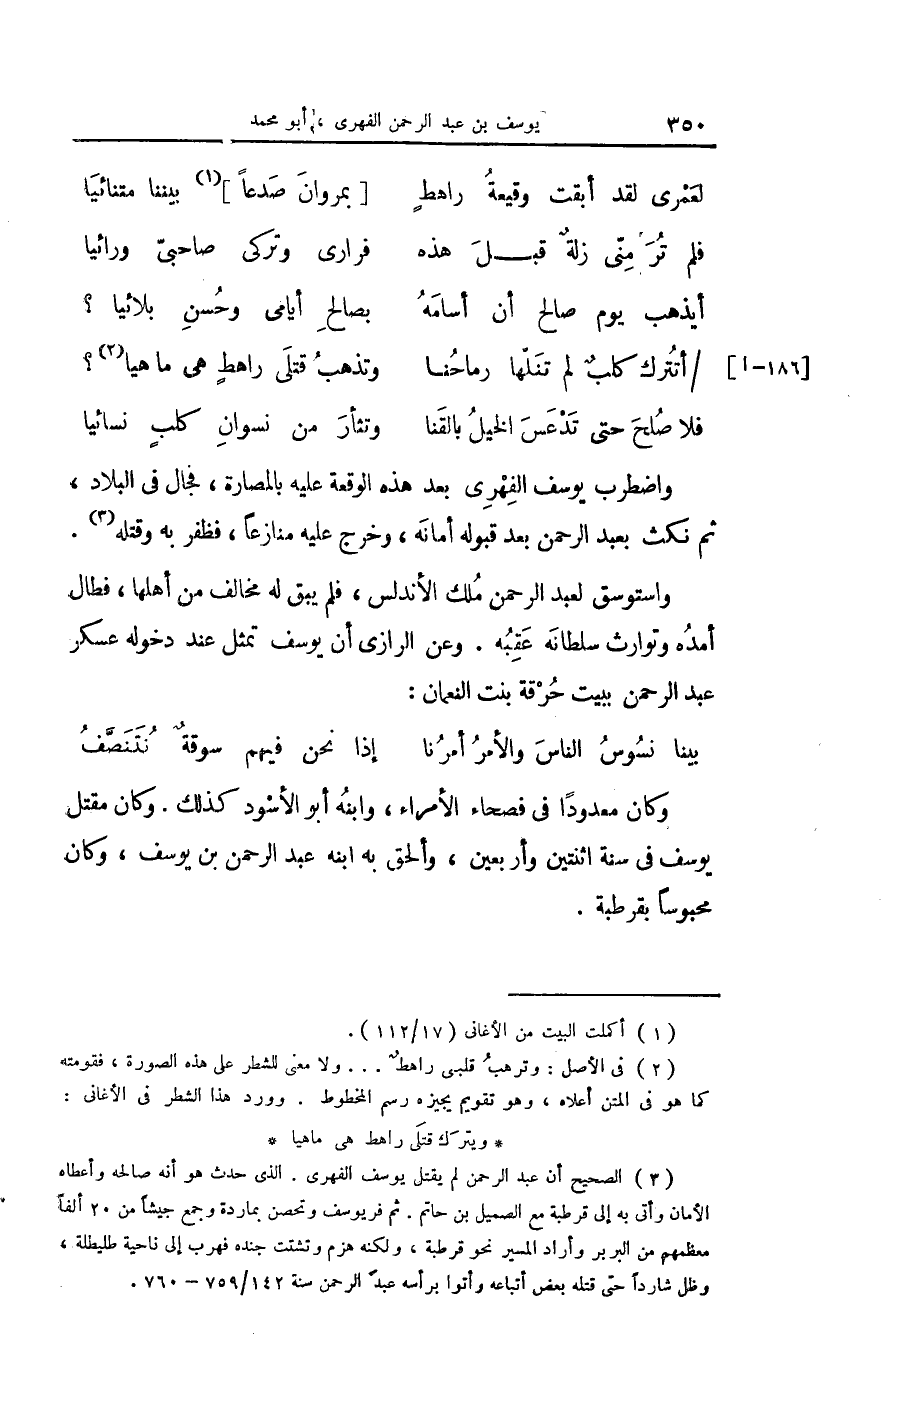 ٣٥٠ يوسف بن عبد الرحمن الفهرى ، أبو محمد
لعَمْرى لقد أبقت وقيعةُ راهطٍ [ بمروانَ صَدعاً ](١) بيننا متنائيَا
فلم تُرَ مِنّى زلةٌ قبـــلَ هذه فرارى وتركى صاحبىّ ورائيا
أيذهب يوم صالح أن أسامَهُ بصالحِ أيامى وحُسنِ بلائيا ؟
[١٨٦-ا] / أتُترك كلبٌ لم تنَلْها رماحُنـا وتذهبُ قتلَى راهطٍ هى ما هيا(٢)؟
فلا صُلحَ حتى تَدْعَسَ الخيلُ بالقَنا وتثأرَ من نسوانِ كلبٍ نسائيا
واضطرب يوسف الفِهْرِى بعد هذه الوقعة عليه بالمصارة ، فجال فى البلاد ،
ثم نكث بعبد الرحمن بعد قبوله أمانَه ، وخرج عليه منازعاً ، فظفر به وقتله(٣) .
واستوسق لعبد الرحمن مُلك الأندلس ، فلم يبق له مخالف من أهلها ، فطال
أمدُه وتوارث سلطانَه عَقِبُه . وعن الرازى أن يوسف تمثل عند دخوله عسكر
عبد الرحمن ببيت حُرْقة بنت النعمان :
بينا نسُوسُ الناسَ والأمرُ أمرُنا إذا نحن فيهم سوقةٌ نُتَنَصَّفُ
وكان معدودًا فى فصحاء الأمراء ، وابنُه أبو الأسْود كذلك . وكان مقتل
يوسف فى سنة اثنتين وأربعين ، وألحق به ابنه عبد الرحمن بن يوسف ، وكان
محبوساً بقرطبة .
( ١ ) أكملت البيت من الأغانى ( ١١٢/١٧ ) .
( ٢ ) فى الأصل : وترهبُ قلبى راهطٌ . . . ولا معنى للشطر على هذه الصورة ، فقومته
كما هو فى المتن أعلاه ، وهو تقويم يجيزه رسم المخطوط . وورد هذا الشطر فى الأغانى :
* ويترك قتلَى راهط هى ماهيا *
( ٣ ) الصحيح أن عبد الرحمن لم يقتل يوسف الفهرى . الذى حدث هو أنه صالحه وأعطاه
الأمان وأتى به إلى قرطبة مع الصميل بن حاتم . ثم فر يوسف وتحصن بماردة وجمع جيشاً من ٢٠ ألفاً
معظمهم من البربر وأراد المسير نحو قرطبة ، ولكنه هزم وتشتت جنده فهرب إلى ناحية طليطلة ،
وظل شارداً حتى قتله بعض أتباعه وأتوا برأسه عبد الرحمن سنة ٧٥٩/١٤٢ – ٧٦٠ .